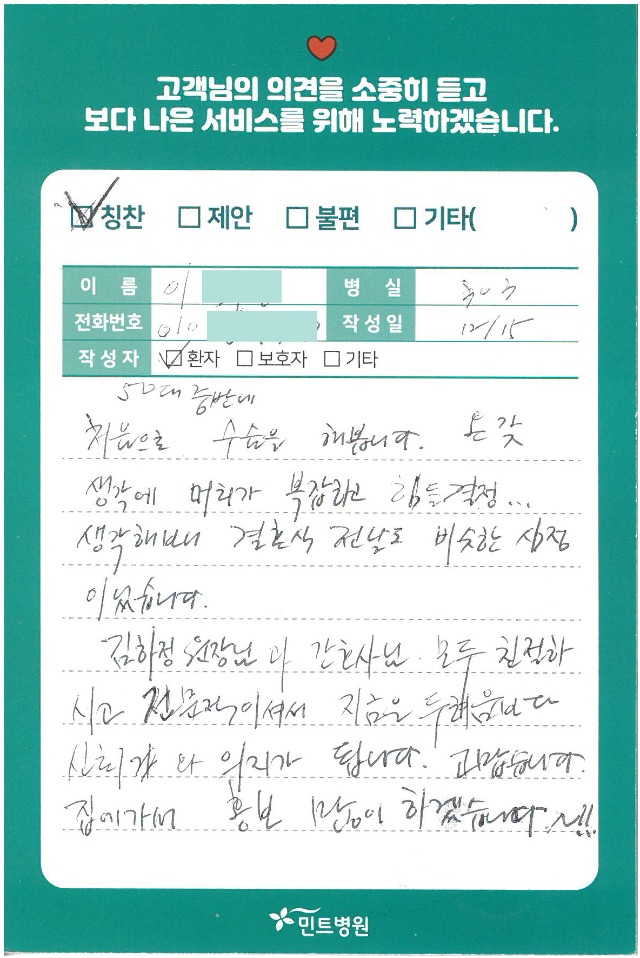 고객님의 의견을 소중히 듣고
보다 나은 서비스를 위해 노력하겠습니다.
칭찬 제안 불편 기타( )
이 름 이 병 실
전화번호 010 작성일 12/15
작성자 환자 보호자 기타
50대 중반에
처음으로 수술을 해봅니다. 온갖
생각에 머리가 복잡하고 힘든결정...
생각해보니 결혼식 전날도 비슷한 심정
이었습니다.
김하정 원장님과 간호사님 모두 친절하
시고 전문적이셔서 지금은 두려움보다
신뢰감와 의지가 됩니다. 고맙습니다.
집에가서 홍보 많이 하겠습니다~!!
민트병원